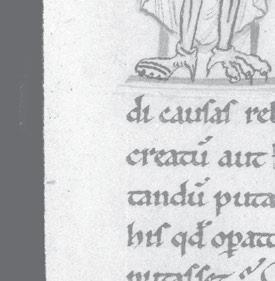 di causas re
creatū aut
tandū puta
his qđ opat
putasset